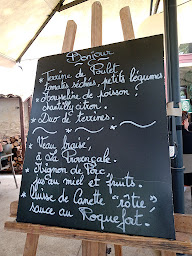 Bonjour
* Terrine de Poulet,
tomates séchées, petits légumes.
* Mousseline de poisson,
chantilly citron.
* Duo de terrines.
* Veau braisé,
à la Provençale.
* Mignon de Porc,
jus au miel et fruits.
* Cuisse de Canette "rôtie",
sauce au Roquefort.